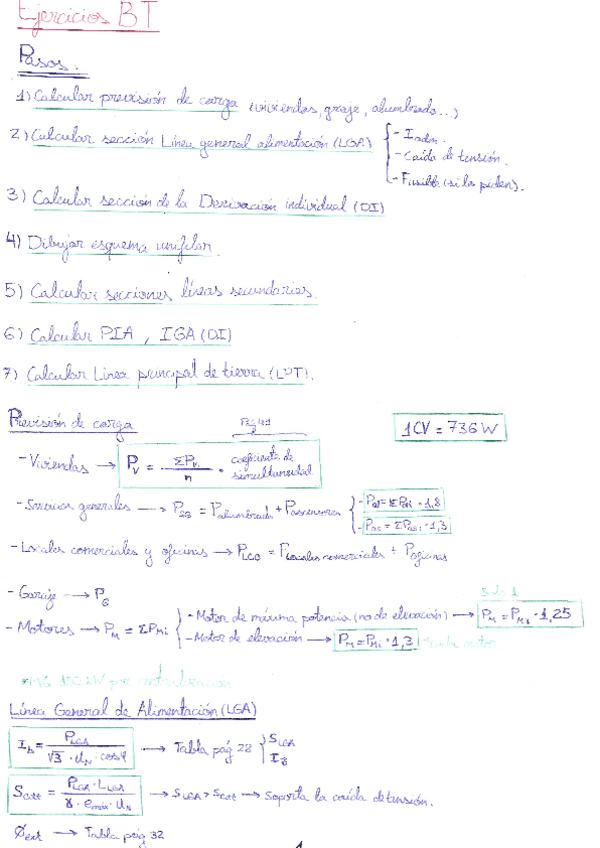 Ejercicios BT
Pasos:
1) Calcular previsión de carga (viviendas, graje, alumbrado...)
2) Calcular sección Línea general alimentación (LGA) { - Iadm.
- Caída de tensión.
- Fusible (si los piden).
3) Calcular sección de la Derivación individual (DI)
4) Dibujar esquema unifilar.
5) Calcular secciones líneas secundarias.
6) Calcular PIA, IGA (DI)
7) Calcular Línea principal de tierra (LPT).
Previsión de carga
1CV = 736 W
- Viviendas → Pv = ΣPv / n · coeficiente de simultaneidad
- Servicios generales → Psg = Palumbrado + Pascensores { - Pal = ΣPali · 1,8
- Pas = ΣPasi · 1,3
- Locales comerciales y oficinas → PLCO = Plocales comerciales + Poficinas
- Garaje → PG
Solo 1
- Motores → PM = ΣPMi { - Motor de máxima potencia (no de elevación) → PM = PMi · 1,25
- Motor de elevación → PM = PMi · 1,3
Línea General de Alimentación (LGA)
Ib = PLGA / √3 · UN · cosφ → Tabla pág 22 { SLGA
IZ
Scdt = PLGA · LLGA / γ · emáx · UN → SLGA > Scdt → Soporta la caída de tensión.
Øext → Tabla pág 32
1